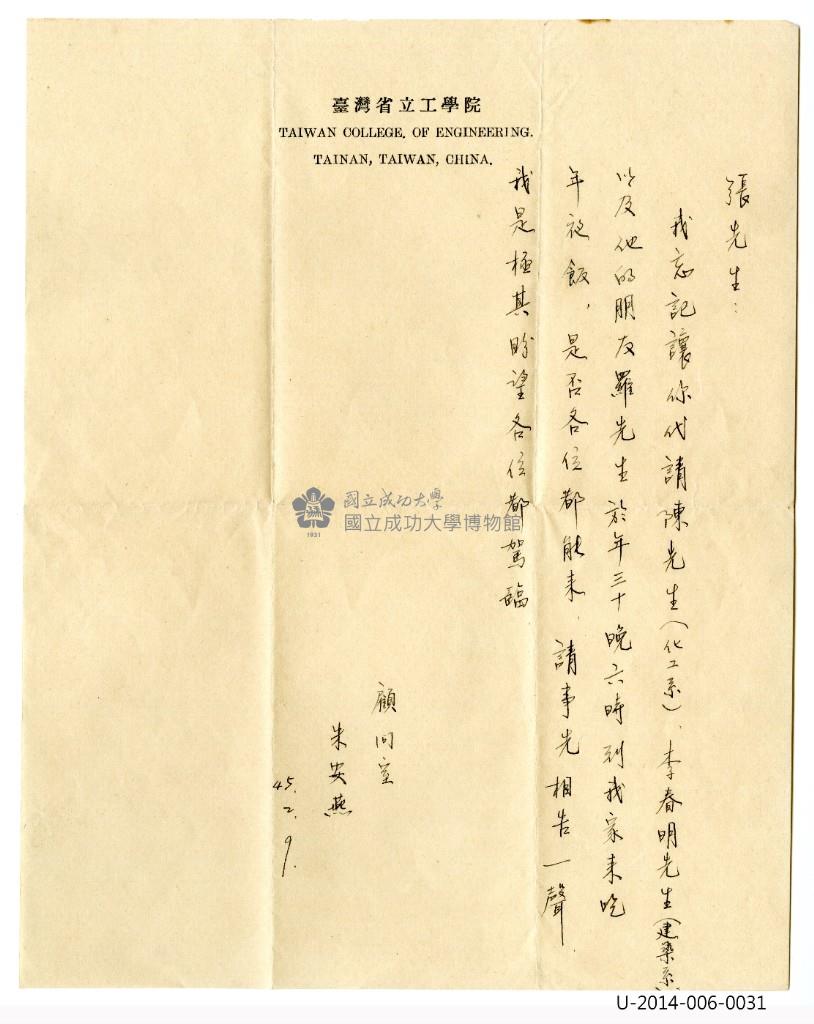 臺灣省立工學院
TAIWAN COLLEGE. OF ENGINEERING.
TAINAN, TAIWAN, CHINA.
張先生：
我忘記讓你代請陳先生(化工系)、李春明先生(建築系)
以及他的朋友羅先生於年三十晚六時到我家來吃
年夜飯，是否各位都能來，請事先相告一聲
我是極其盼望各位都駕臨
顧問室
朱安燕
45.2.9.
國立成功大學
國立成功大學博物館
1931
U-2014-006-0031